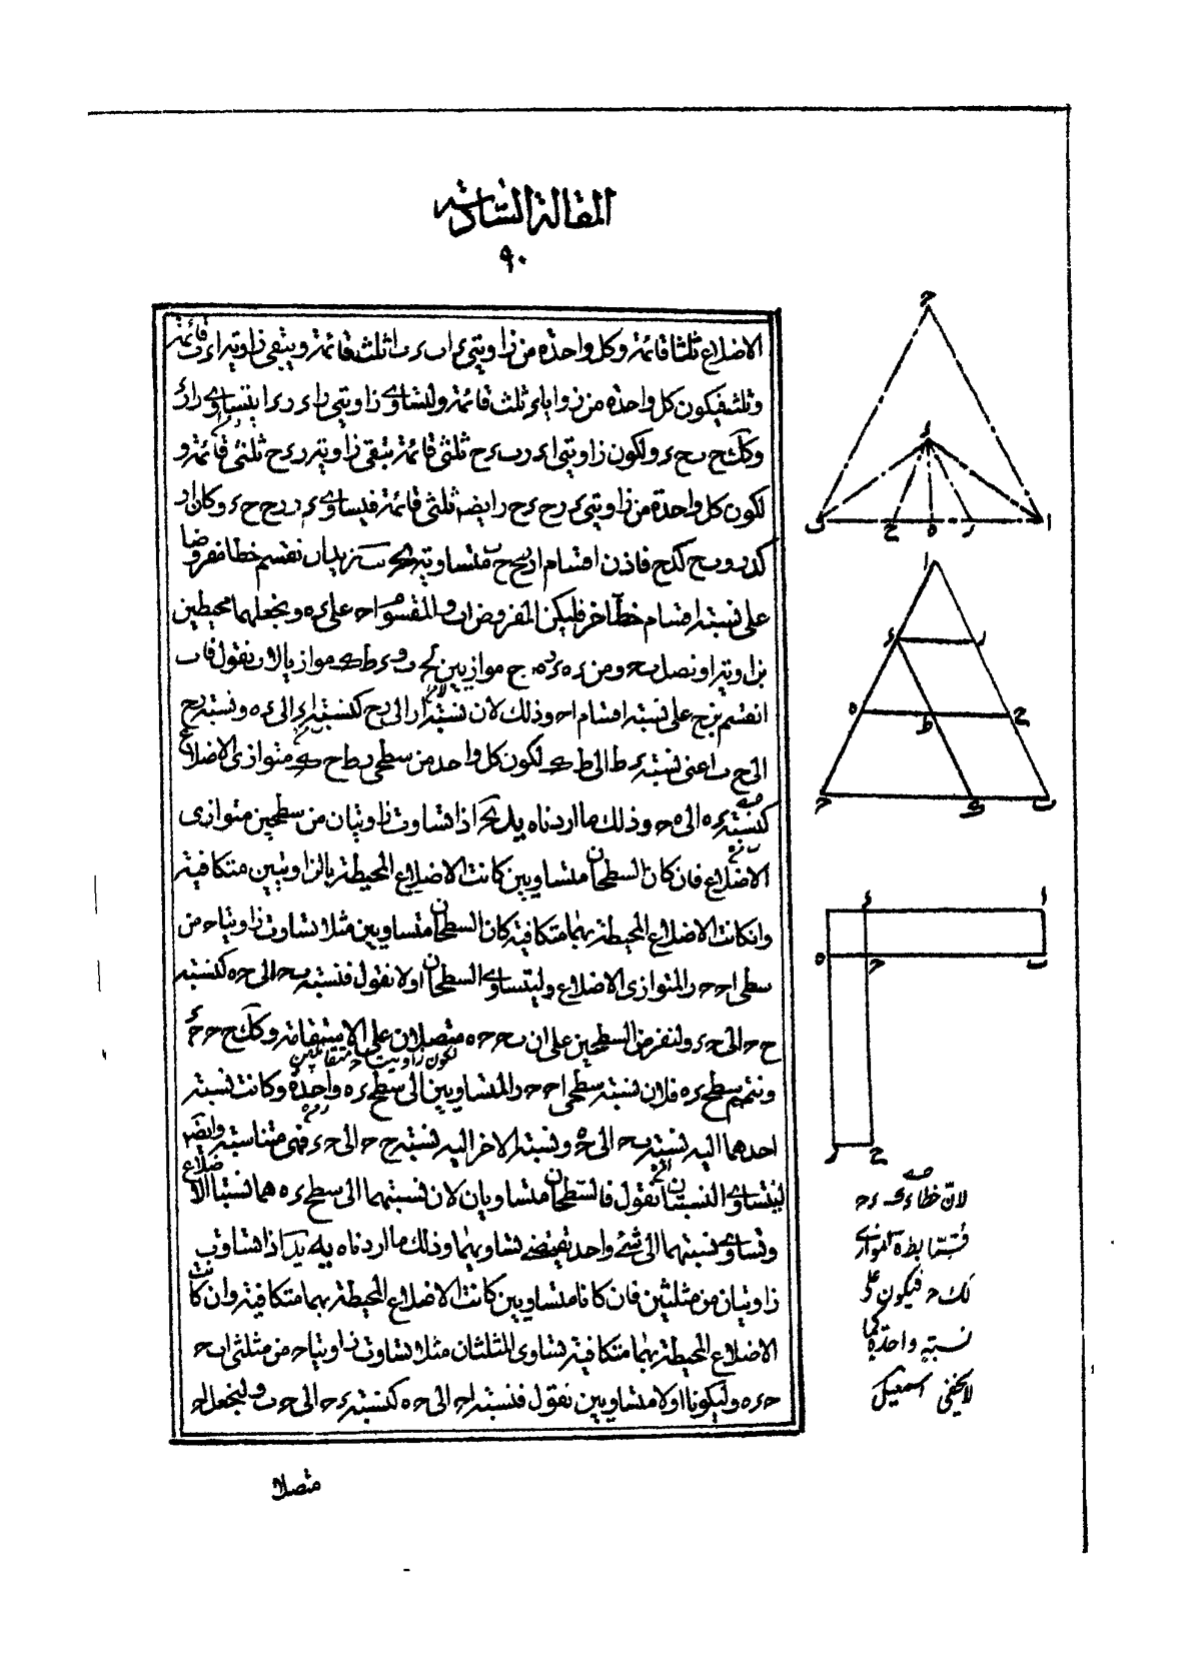 المقالة السادسة
٩٠
الاضلاع ثلثا قائمة وكل واحدة من زاويتى ء ا ب ء ب ا ثلث قائمة ويبقى زاوية ا ء ب قائمة
وثلث فيكون كل واحدة من زوايا ء ثلث قائمة ولتساوى زاويتى ر ا ء ر ء ا يتساوى ر ا ر ء
وكك ح ب ح ء ولكون زاويتى ا ء ر ب ء ح ثلثى قائمة تبقى زاوية ر ء ح ثلثى قائمة و
لكون كل واحدة من زاويتى ء ر ح ء ح ر ايضا ثلثى قائمة فيساوى ء ر ر ح ح ء وكان ا ر
كـ ء ر و ب ح كـ ء ح فاذن اقسام ا ر ر ح ح ب متساوية نريد ان نقسم خطا مفروضا
على نسبة اقسام خط آخر فليكن المفروض ا ب والمقسوم ا ح على ء ه ونجعلهما محيطين
بزاوية ا ونصل ب ح ومن ء ه ء ر ه ح موازيين لـ ح ب و ء ط ك موازيا لـ ا ب نقول فا ب
انقسم بـ ر ح على نسبة اقسام ا ح وذلك لان نسبة ا ر الى ر ح كنسبة ا ء الى ء ه ونسبة ر ح
الى ح ب اعنى نسبة ء ط الى ط ك لكون كل واحد من سطحى ر ط ح ك متوازى الاضلاع
كنسبة ء ه الى ه ح وذلك ما اردناه يد اذا تساوت زاويتان من سطحين متوازى
الاضلاع فان كان السطحان متساويين كانت الاضلاع المحيطة بالزاويتين متكافية
وان كانت الاضلاع المحيطة بهما متكافية كان السطحان متساويين مثلا تساوت زاويتا ح من
سطحى ا ح ح ر المتوازى الاضلاع وليتساوى السطحان اولا نقول فنسبة ب ح الى ح ه كنسبة
ح ح الى ح ء ولنفرض السطحين على ان ب ح ح ه متصلان على الاستقامة وكك ح ح ح ء
لكون زاويتى ح متقابلتين
ونتمم سطح ء ه فلان نسبة سطحى ا ح ح ر المتساويين الى سطح ء ه واحدة وكانت نسبة
احدهما اليه نسبة ب ح الى ح ه ونسبة الاخر اليه نسبة ح ح الى ح ء فهى متناسبة وايضا
ليتساوى النسبتان نقول فالسطحان متساويان لان نسبتهما الى سطح ء ه هما نسبتا الاضلاع
وتساوى نسبتهما الى شئ واحد يقتضى تساويهما وذلك ما اردناه يه اذا تساوت
زاويتان من مثلثين فان كانا متساويين كانت الاضلاع المحيطة بهما متكافية وان كانت
الاضلاع المحيطة بهما متكافية تساوى المثلثان مثلا تساوت زاويتا ح من مثلثى ا ب ح
ح ء ه وليكونا اولا متساويين نقول فنسبة ا ح الى ح ه كنسبة ء ح الى ح ب ولنجعل ا ح
متصلا
ح
ء
ب ح ه ر ا
ا
ء ر
ه ط ح
ح ك ب
ء ا
ه ح ب
ر ح
لان خطا
لك ح فيكون على
نسبة واحدة كما
لا يخفى اسمعيل